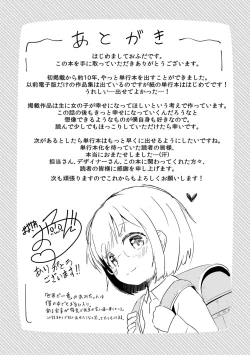 あとがき
はじめましておふだです。
この本を手に取っていただきありがとうございます。
初掲載から約10年、やっと単行本を出すことができました。
以前電子版だけの作品集は出ているのですが紙の単行本ははじめてです！
うれしい…出せてよかった…！
掲載作品は主に女の子が幸せになってほしいという考えで作っています。
この話の後もきっと幸せになっていくんだろうなと
想像できるようなものが僕自身も好きなので。
読んで少しでもほっこりしていただけたら幸いです。
次があるとしたら単行本はもっと早くに出せるようにしたいですね。
単行本化を待っていた読者の皆様、
本当におまたせしました…(汗)
担当さん、デザイナーさん、この本に関わってくれた方々、
読者の皆様に感謝を申し上げます。
次も頑張りますのでこれからもよろしくお願いします！
ありがとうございます!!